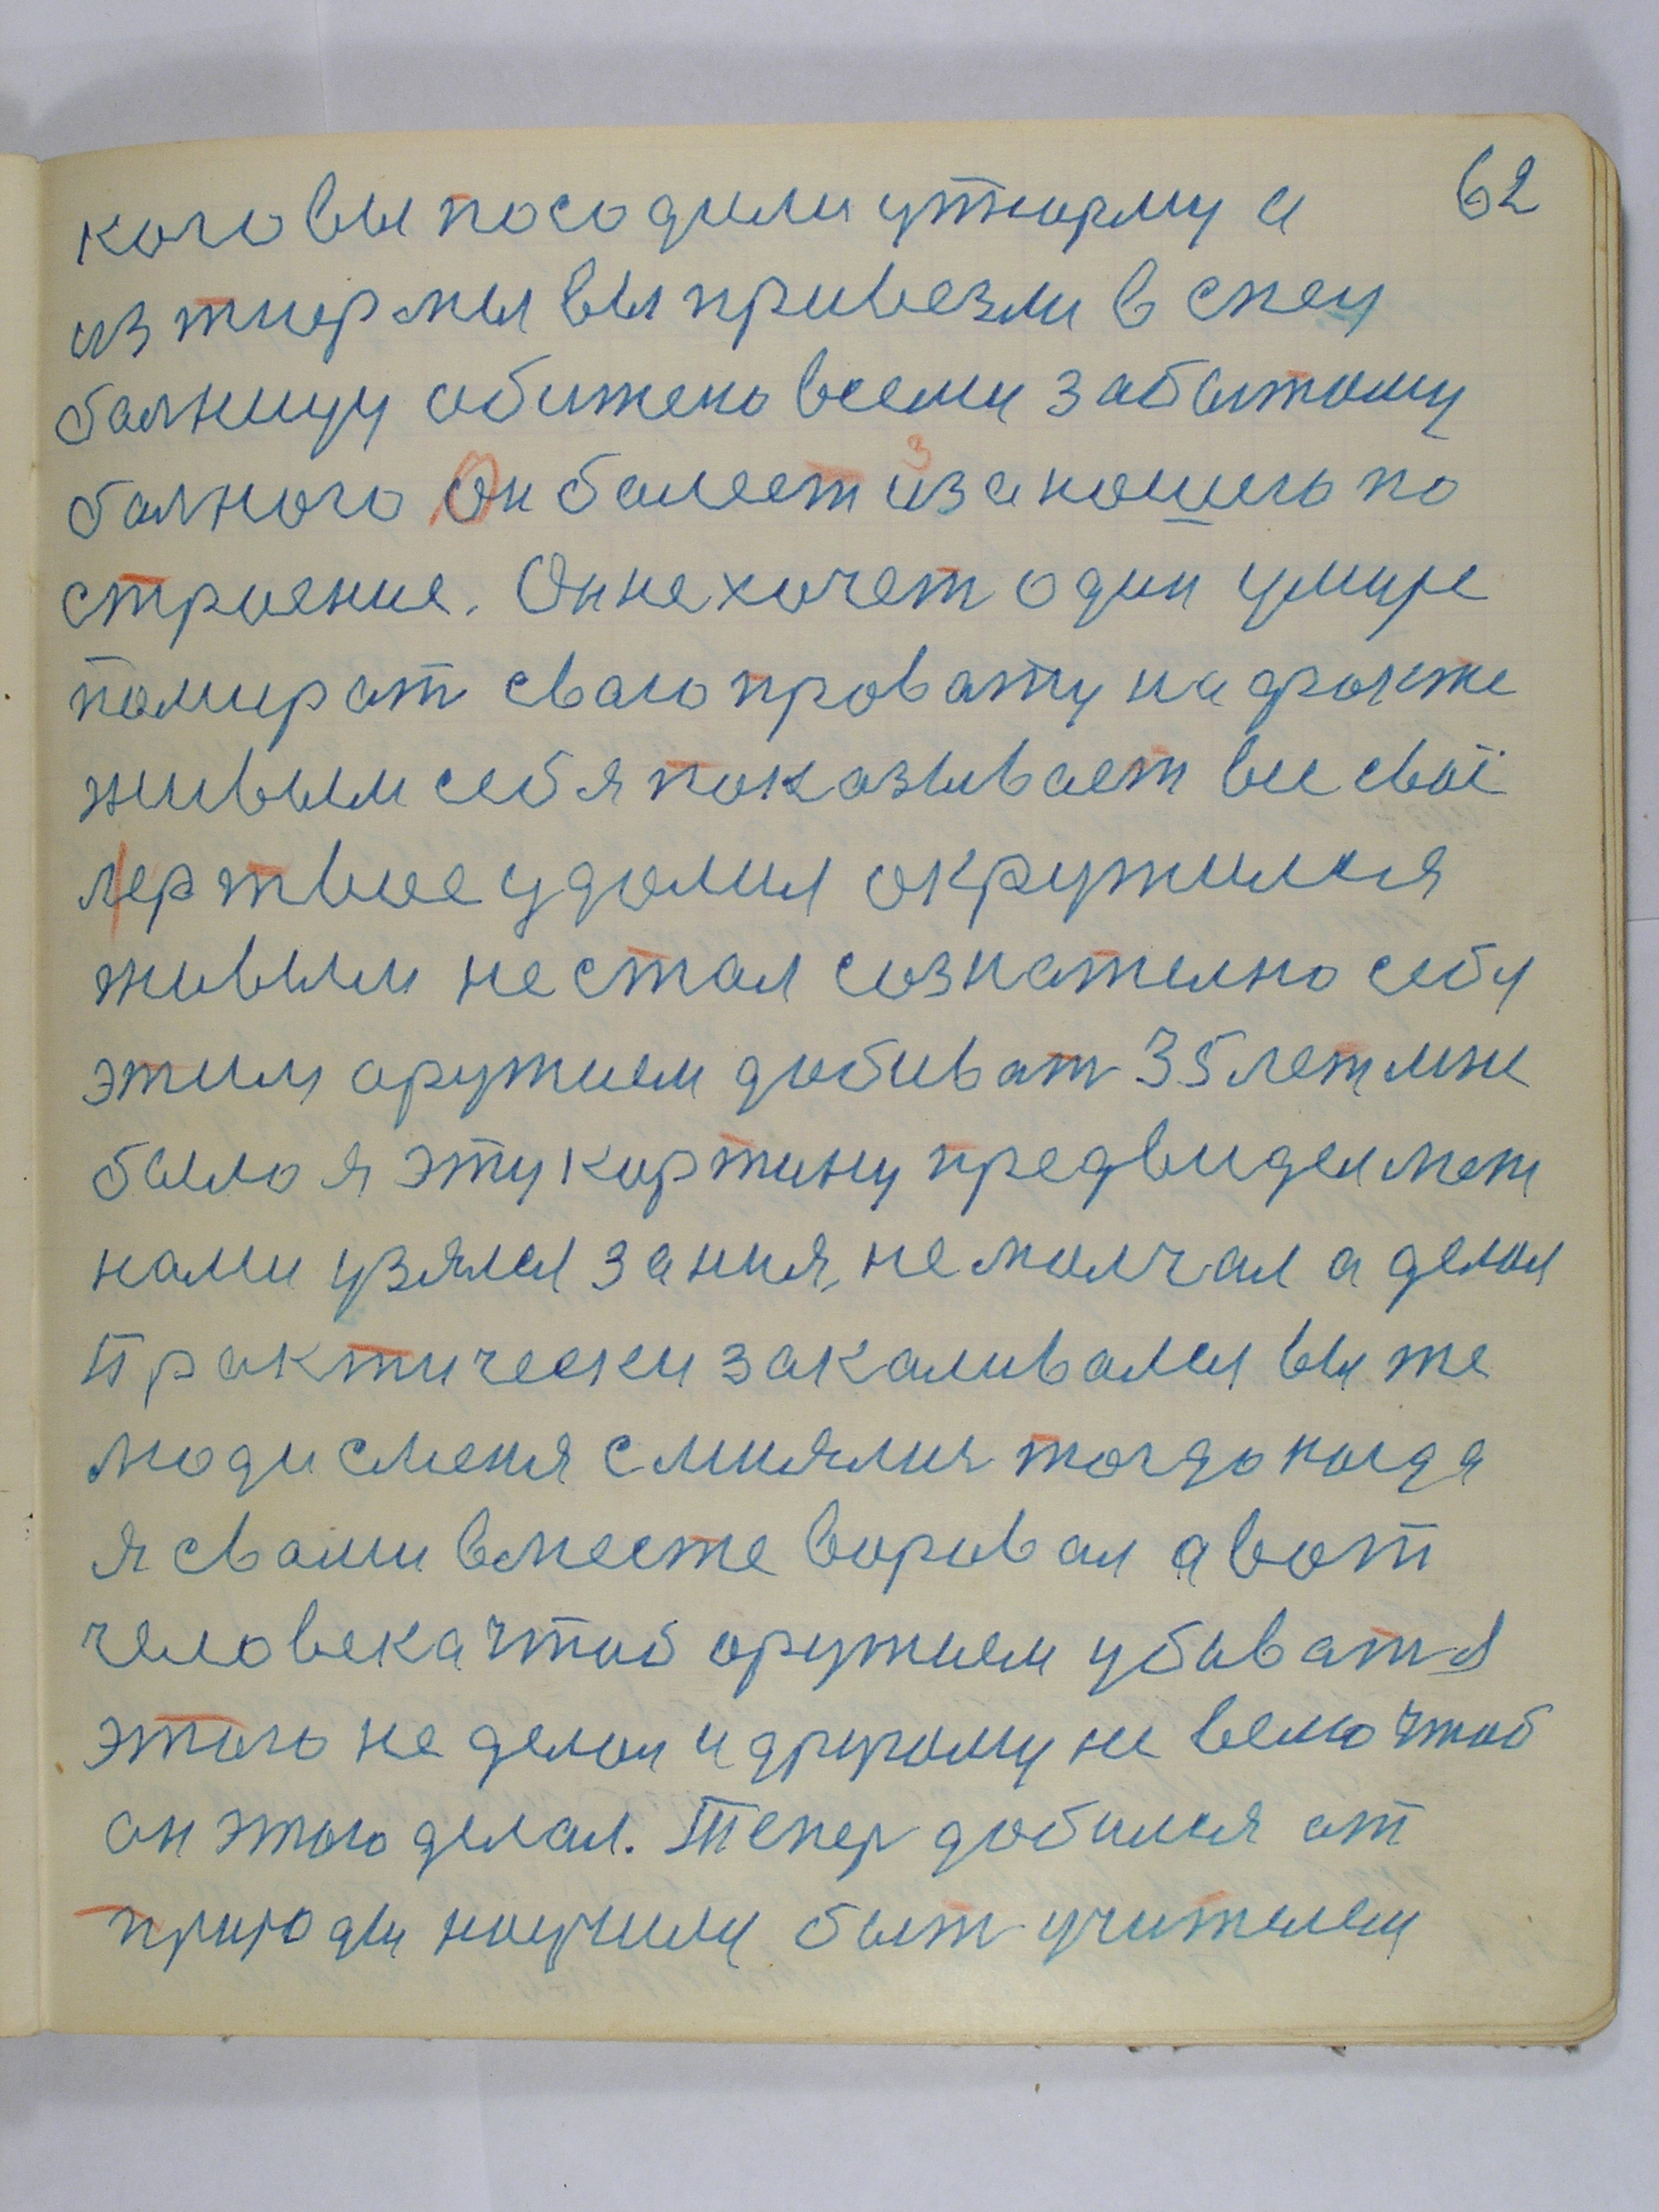 62
кого вы посодили утюрму и
из тиормы вы привезли в спец
балницу обижено всеми забытому
балного Он балеет из за ношего по
строение. Он не хочет один умире
помират сваю провату на факте
живым себя показывает все своё
мертвое удомил окружился
живым не стал сознателно себя
этим оружием добиват 35 лет мне
было я эту картину предвидел меж
нами узялся за ния, не молчал а делал
Практически закаливался вы же
люди сменя смиялися тогда когда
я свами вместе воровал а вот
человека чтоб оружием убиват я
этого не делал и другому не велю чтоб
он этого делал. Тепер добился от
природы научили быт учителем